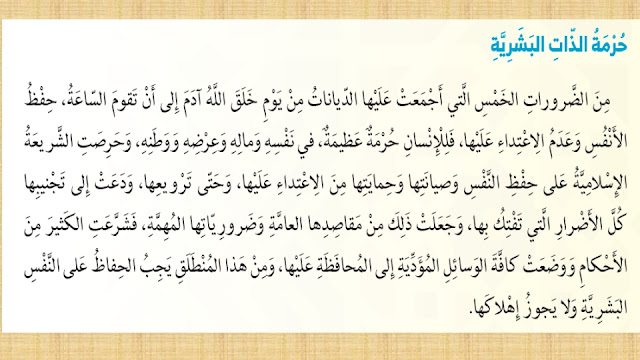 حُرْمَةُ الذّاتِ البَشَرِيَّةِ
مِنَ الضَّروراتِ الخَمْسِ الَّتي أَجْمَعَتْ عَلَيْها الدّياناتُ مِنْ يَوْمِ خَلَقَ اللَّهُ آدَمَ إِلى أَنْ تَقومَ السّاعَةُ، حِفْظُ
الأَنْفُسِ وَعَدَمُ الِاعْتِداءِ عَلَيْها، فَلِلْإِنْسانِ حُرْمَةٌ عَظيمَةٌ، في نَفْسِهِ وَمالِهِ وَعِرْضِهِ وَوَطَنِهِ، وَحَرِصَتِ الشَّريعَةُ
الإِسْلامِيَّةُ عَلى حِفْظِ النَّفْسِ وَصِيانَتِها وَحِمايَتِها مِنَ الِاعْتِداءِ عَلَيْها، وَحَتّى تَرْويعِها، وَدَعَتْ إِلى تَجْنيبِها
كُلَّ الأَضْرارِ الَّتي تَفْتِكُ بِها، وَجَعَلَتْ ذَلِكَ مِنْ مَقاصِدِها العامَّةِ وَضَرورِيّاتِها المُهِمَّةِ، فَشَرَّعَتِ الكَثيرَ مِنَ
الأَحْكامِ وَوَضَعَتْ كافَّةَ الوَسائِلِ المُؤَدِّيَةِ إِلى المُحافَظَةِ عَلَيْها، وَمِنْ هَذا المُنْطَلَقِ يَجِبُ الحِفاظُ عَلى النَّفْسِ
البَشَرِيَّةِ وَلا يَجوزُ إِهْلاكَها.